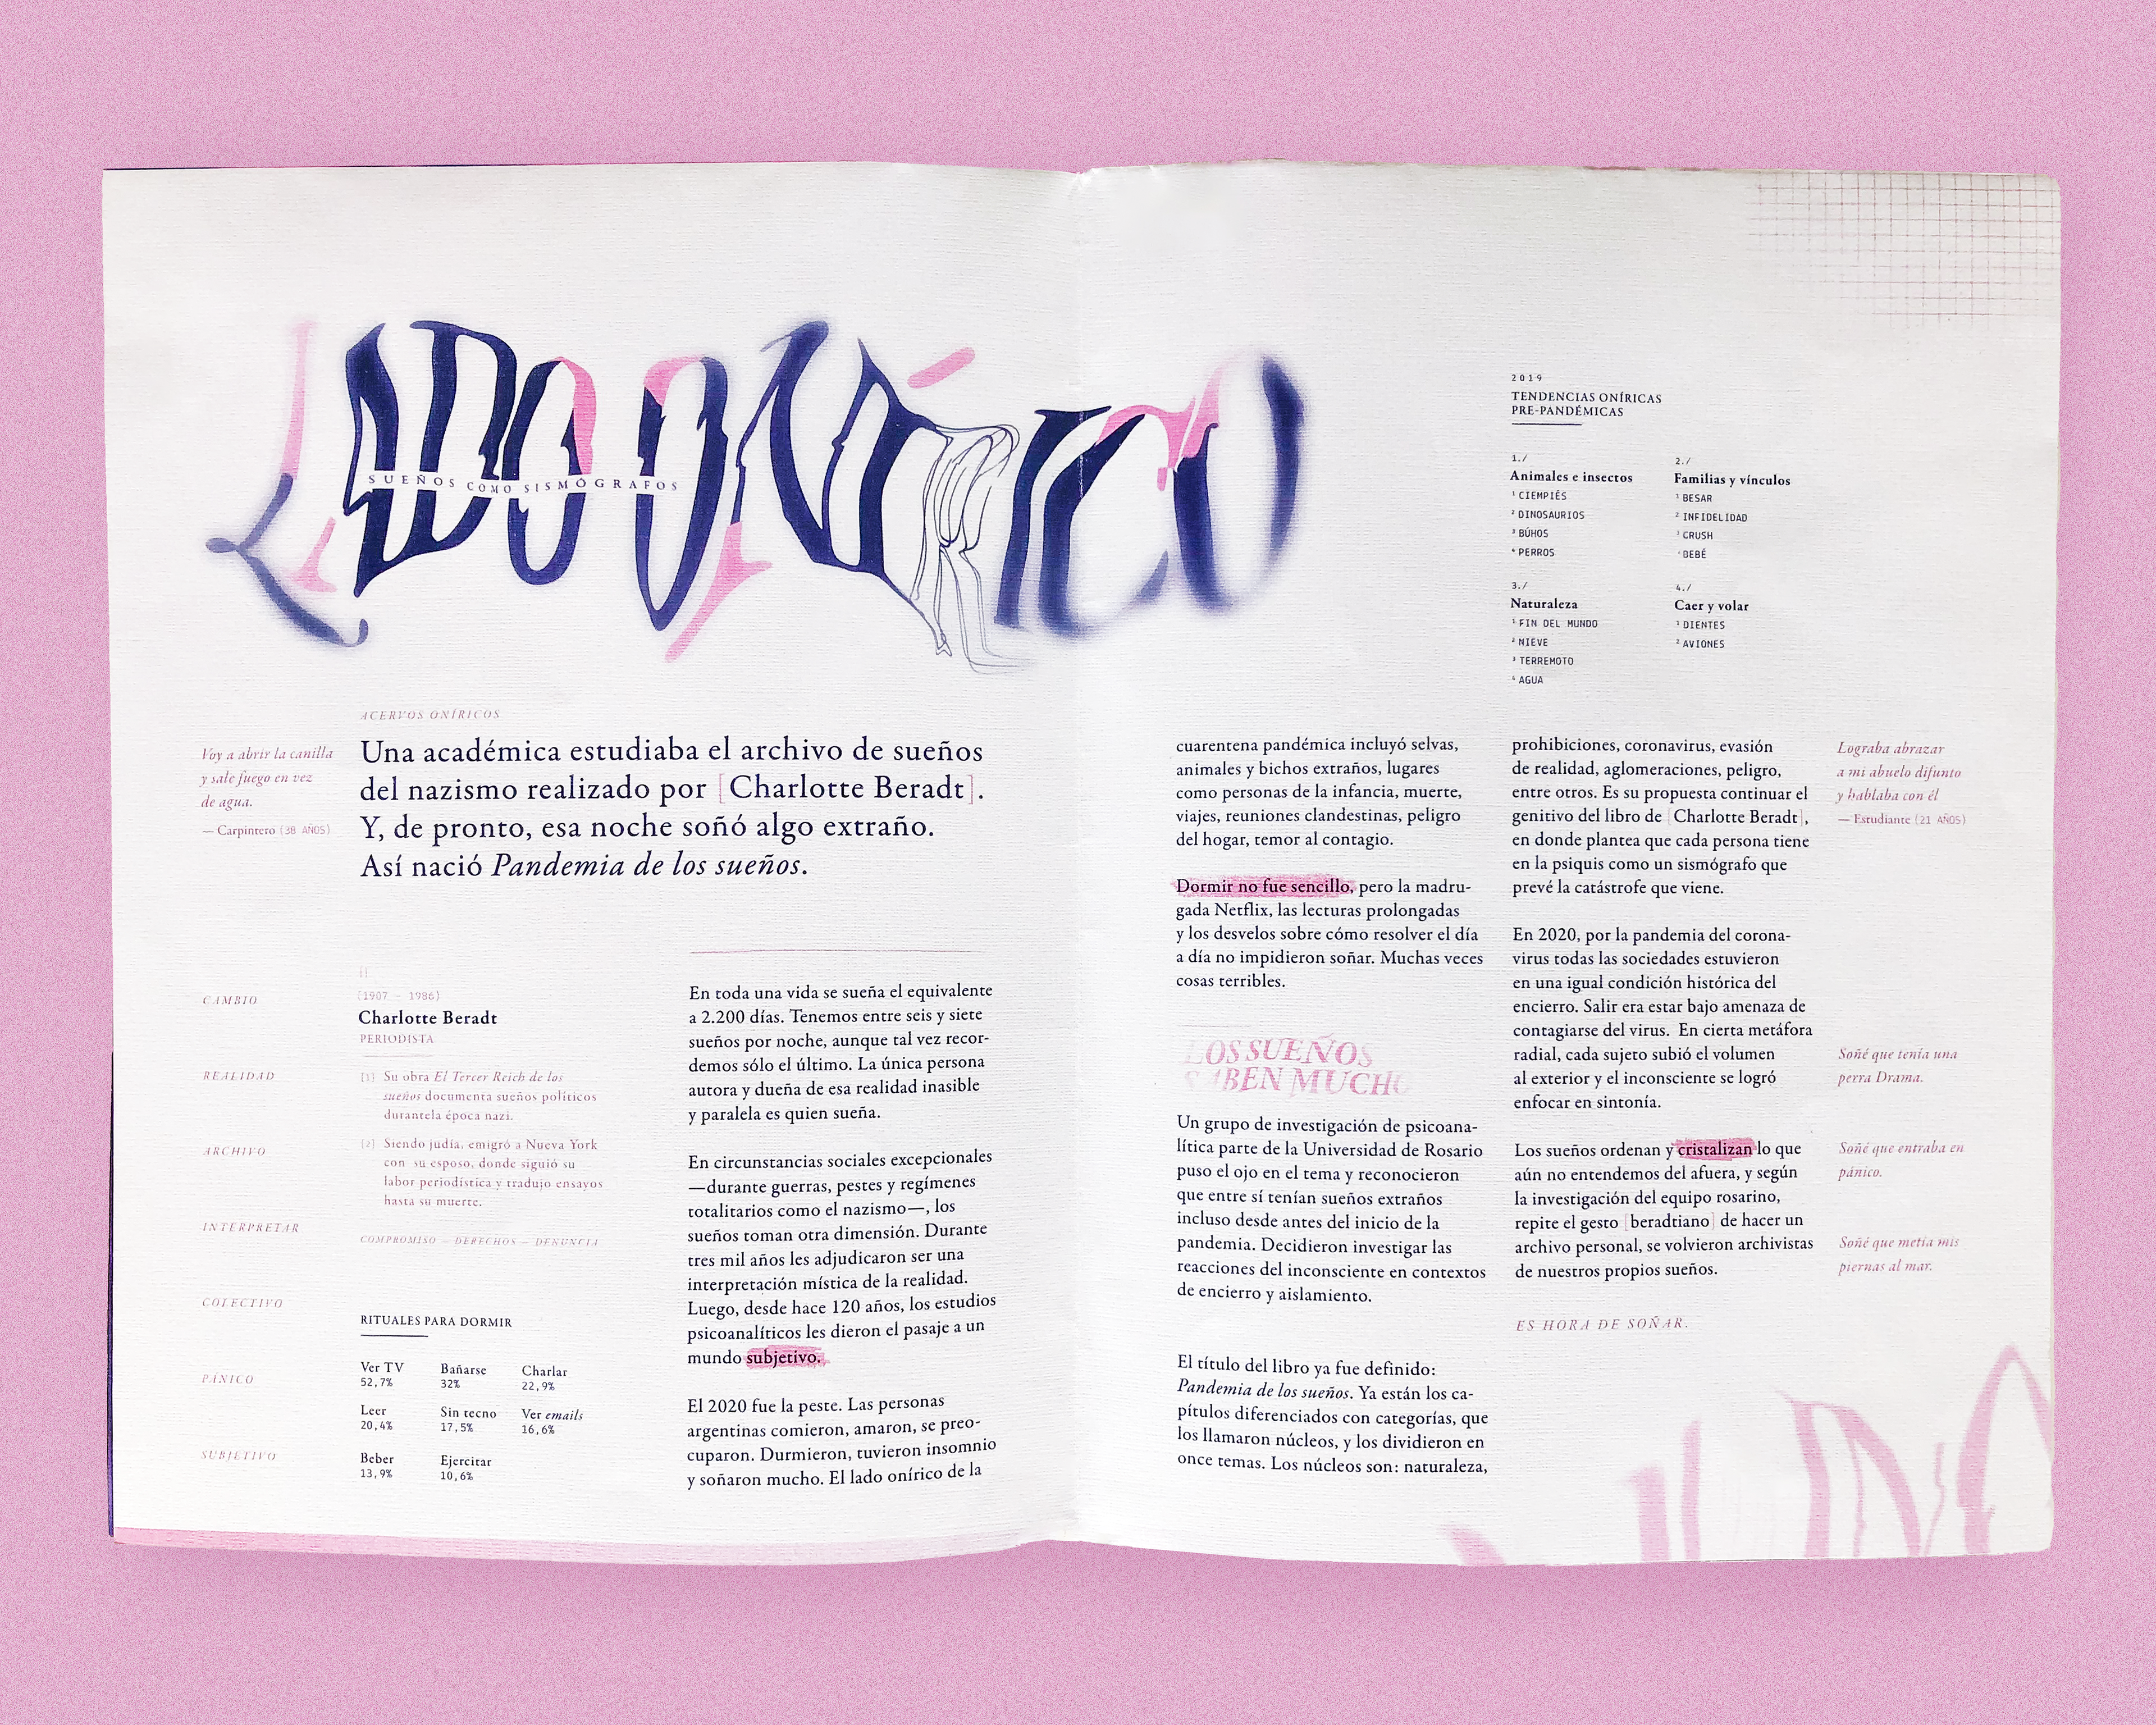 LADO ONÍRICO
SUEÑOS COMO SISMÓGRAFOS
ACERVOS ONÍRICOS
Voy a abrir la canilla
y sale fuego en vez
de agua.
— Carpintero (38 AÑOS)
Una académica estudiaba el archivo de sueños
del nazismo realizado por [Charlotte Beradt].
Y, de pronto, esa noche soñó algo extraño.
Así nació Pandemia de los sueños.
CAMBIO
REALIDAD
ARCHIVO
INTERPRETAR
COLECTIVO
PÁNICO
SUBJETIVO
[]
(1907 – 1986)
Charlotte Beradt
PERIODISTA
[1] Su obra El Tercer Reich de los
sueños documenta sueños políticos
durantela época nazi.
[2] Siendo judía, emigró a Nueva York
con su esposo, donde siguió su
labor periodística y tradujo ensayos
hasta su muerte.
COMPROMISO — DERECHOS — DENUNCIA
RITUALES PARA DORMIR
Ver TV Bañarse Charlar
52,7% 32% 22,9%
Leer Sin tecno Ver emails
20,4% 17,5% 16,6%
Beber Ejercitar
13,9% 10,6%
En toda una vida se sueña el equivalente
a 2.200 días. Tenemos entre seis y siete
sueños por noche, aunque tal vez recor-
demos sólo el último. La única persona
autora y dueña de esa realidad inasible
y paralela es quien sueña.
En circunstancias sociales excepcionales
—durante guerras, pestes y regímenes
totalitarios como el nazismo—, los
sueños toman otra dimensión. Durante
tres mil años les adjudicaron ser una
interpretación mística de la realidad.
Luego, desde hace 120 años, los estudios
psicoanalíticos les dieron el pasaje a un
mundo subjetivo.
El 2020 fue la peste. Las personas
argentinas comieron, amaron, se preo-
cuparon. Durmieron, tuvieron insomnio
y soñaron mucho. El lado onírico de la
cuarentena pandémica incluyó selvas,
animales y bichos extraños, lugares
como personas de la infancia, muerte,
viajes, reuniones clandestinas, peligro
del hogar, temor al contagio.
Dormir no fue sencillo, pero la madru-
gada Netflix, las lecturas prolongadas
y los desvelos sobre cómo resolver el día
a día no impidieron soñar. Muchas veces
cosas terribles.
LOS SUEÑOS
SABEN MUCHO
Un grupo de investigación de psicoana-
lítica parte de la Universidad de Rosario
puso el ojo en el tema y reconocieron
que entre sí tenían sueños extraños
incluso desde antes del inicio de la
pandemia. Decidieron investigar las
reacciones del inconsciente en contextos
de encierro y aislamiento.
El título del libro ya fue definido:
Pandemia de los sueños. Ya están los ca-
pítulos diferenciados con categorías, que
los llamaron núcleos, y los dividieron en
once temas. Los núcleos son: naturaleza,
2019
TENDENCIAS ONÍRICAS
PRE-PANDÉMICAS
1./
Animales e insectos
1 CIEMPIÉS
2 DINOSAURIOS
3 BÚHOS
4 PERROS
2./
Familias y vínculos
1 BESAR
2 INFIDELIDAD
3 CRUSH
4 BEBÉ
3./
Naturaleza
1 FIN DEL MUNDO
2 NIEVE
3 TERREMOTO
4 AGUA
4./
Caer y volar
1 DIENTES
2 AVIONES
prohibiciones, coronavirus, evasión
de realidad, aglomeraciones, peligro,
entre otros. Es su propuesta continuar el
genitivo del libro de [Charlotte Beradt],
en donde plantea que cada persona tiene
en la psiquis como un sismógrafo que
prevé la catástrofe que viene.
En 2020, por la pandemia del corona-
virus todas las sociedades estuvieron
en una igual condición histórica del
encierro. Salir era estar bajo amenaza de
contagiarse del virus. En cierta metáfora
radial, cada sujeto subió el volumen
al exterior y el inconsciente se logró
enfocar en sintonía.
Los sueños ordenan y cristalizan lo que
aún no entendemos del afuera, y según
la investigación del equipo rosarino,
repite el gesto [beradtiano] de hacer un
archivo personal, se volvieron archivistas
de nuestros propios sueños.
ES HORA DE SOÑAR.
Lograba abrazar
a mi abuelo difunto
y hablaba con él
— Estudiante (21 AÑOS)
Soñé que tenía una
perra Drama.
Soñé que entraba en
pánico.
Soñé que metía mis
piernas al mar.